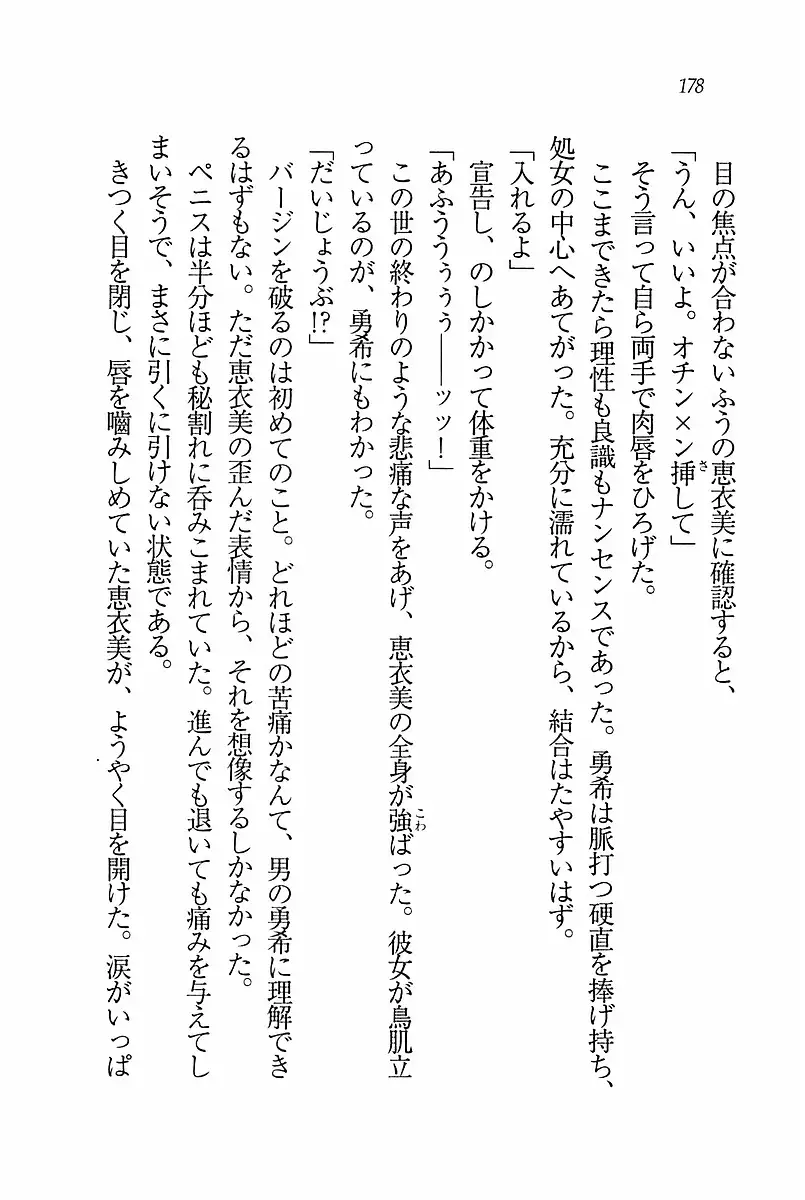 178
目の焦点が合わないふうの恵衣美に確認すると、
「うん、いいよ。オチン×ン挿して」
そう言って自ら両手で肉唇をひろげた。
ここまできたら理性も良識もナンセンスであった。勇希は脈打つ硬直を捧げ持ち、
処女の中心へあてがった。充分に濡れているから、結合はたやすいはず。
「入れるよ」
宣告し、のしかかって体重をかける。
「あふうううぅぅぅ――ッッ！」
この世の終わりのような悲痛な声をあげ、恵衣美の全身が強ばった。彼女が鳥肌立
っているのが、勇希にもわかった。
「だいじょうぶ!?」
バージンを破るのは初めてのこと。どれほどの苦痛かなんて、男の勇希に理解でき
るはずもない。ただ恵衣美の歪んだ表情から、それを想像するしかなかった。
ペニスは半分ほども秘割れに呑みこまれていた。進んでも退いても痛みを与えてし
まいそうで、まさに引くに引けない状態である。
きつく目を閉じ、唇を嚙みしめていた恵衣美が、ようやく目を開けた。涙がいっぱ